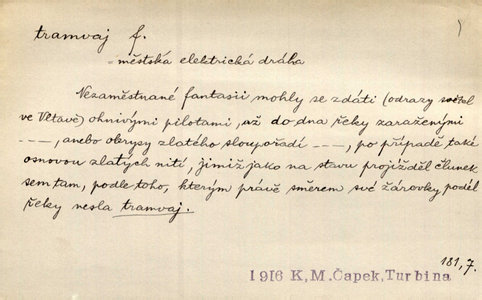 tramvaj f.
městská elektrická dráha
Nezaměstnané fantasii mohly se zdáti (odrazy světel
ve Vltavě) ohnivými pilotami, až do dna řeky zaraženými
---, anebo obrysy zlatého sloupořadí ---, po případě také
osnovou zlatých nití, jimiž jako na stavu projížděl člunek
sem tam, podle toho, kterým právě směrem své žárovky podél
řeky nesla tramvaj.
181,7.
1916 K,M.Čapek,Turbina